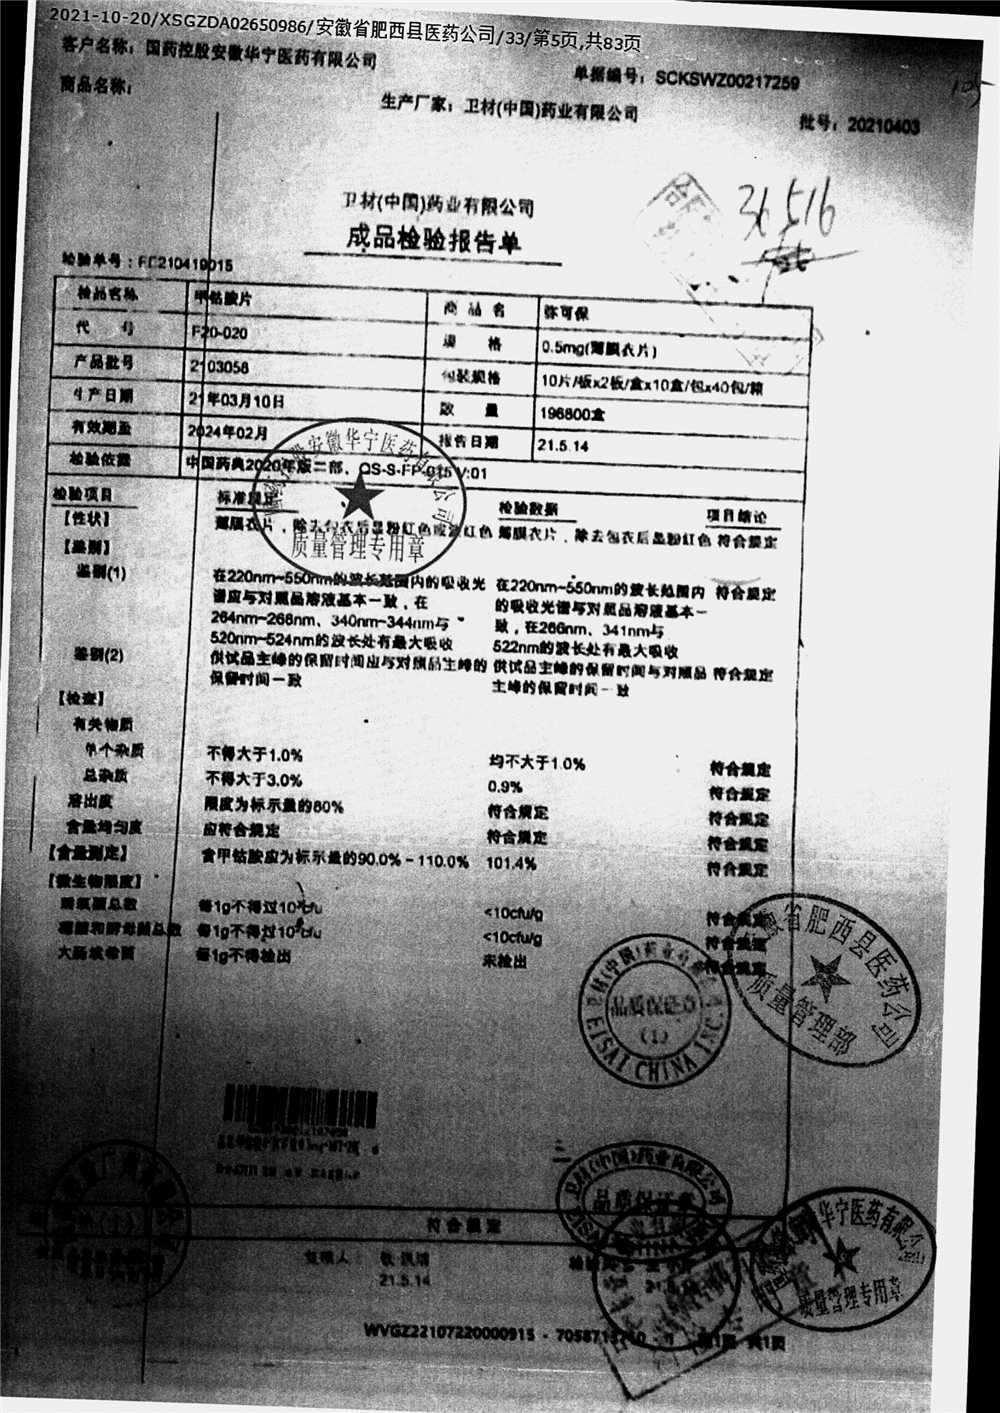 2021-10-20/XSGZDA02650986/安徽省肥西县医药公司/33/第5页,共83页
客户名称：国药控股安徽华宁医药有限公司
单据编号：SCKSWZ00217259
商品名称：
生产厂家：卫材(中国)药业有限公司
批号：20210403
36516
卫材(中国)药业有限公司
成品检验报告单
检验单号：FC210419015
检品名称 甲钴胺片 商品名 弥可保
代号 F20-020 规格 0.5mg(薄膜衣片)
产品批号 2103058 包装规格 10片/板x2板/盒x10盒/包x40包/箱
生产日期 21年03月10日 数量 196800盒
有效期至 2024年02月 报告日期 21.5.14
检验依据 中国药典2020年版二部、QS-S-FP-015 V:01
检验项目 标准规定 检验数据 项目结论
【性状】 薄膜衣片，除去包衣后显粉红色或淡红色 薄膜衣片，除去包衣后显粉红色 符合规定
【鉴别】
鉴别(1) 在220nm~550nm的波长范围内的吸收光 在220nm~550nm的波长范围内 符合规定
谱应与对照品溶液基本一致，在 的吸收光谱与对照品溶液基本一
264nm~268nm、340nm~344nm与 致，在266nm、341nm与
520nm~524nm的波长处有最大吸收 522nm的波长处有最大吸收
鉴别(2) 供试品主峰的保留时间应与对照品主峰的 供试品主峰的保留时间与对照品 符合规定
保留时间一致 主峰的保留时间一致
【检查】
有关物质
单个杂质 不得大于1.0% 均不大于1.0% 符合规定
总杂质 不得大于3.0% 0.9% 符合规定
溶出度 限度为标示量的80% 符合规定 符合规定
含量均匀度 应符合规定 符合规定 符合规定
【含量测定】 含甲钴胺应为标示量的90.0%-110.0% 101.4% 符合规定
【微生物限度】
需氧菌总数 每1g不得过10³cfu <10cfu/g 符合规定
霉菌和酵母菌总数 每1g不得过10²cfu <10cfu/g 符合规定
大肠埃希菌 每1g不得检出 未检出 符合规定
国药控股安徽华宁医药有限公司
质量管理专用章
安徽省肥西县医药公司
质量管理部
卫材(中国)药业有限公司
品质保证章
(1)
EISAI CHINA INC.
卫材(中国)药业有限公司
品质保证章
符合规定
复核人：
21.5.14
华宁医药有限公司
质量管理专用章
WVGZ22107220000915 -
第1页 共1页